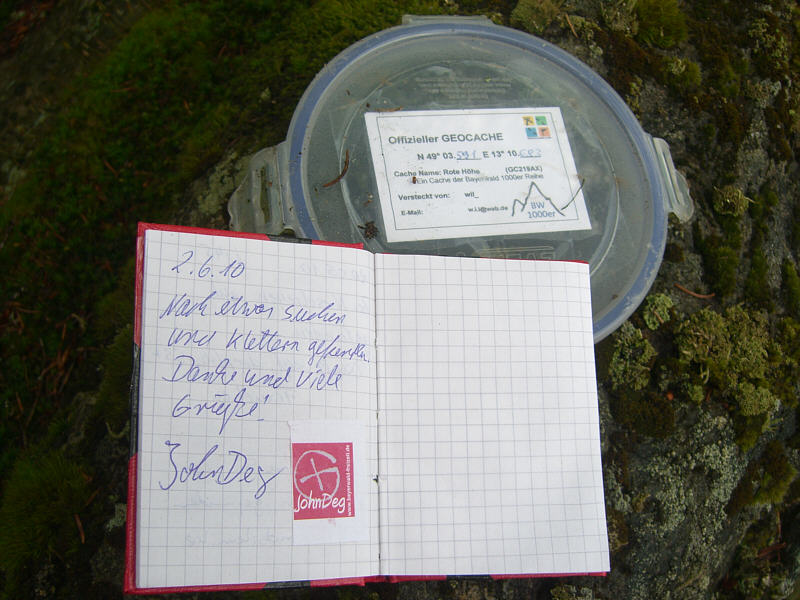 Offizieller GEOCACHE
N 49° 03.591 E 13° 10.683
Cache Name: Rote Höhe (GC219AX)
Ein Cache der Bayerwald 1000er Reihe
Versteckt von: wil_
E-Mail: w.i.l@web.de
BW
1000er
2.6.10
Nach etwas suchen
und klettern gefunden.
Danke und viele
Grüße!
JohnDeg
JohnDeg
www.bayerwald-freizeit.de